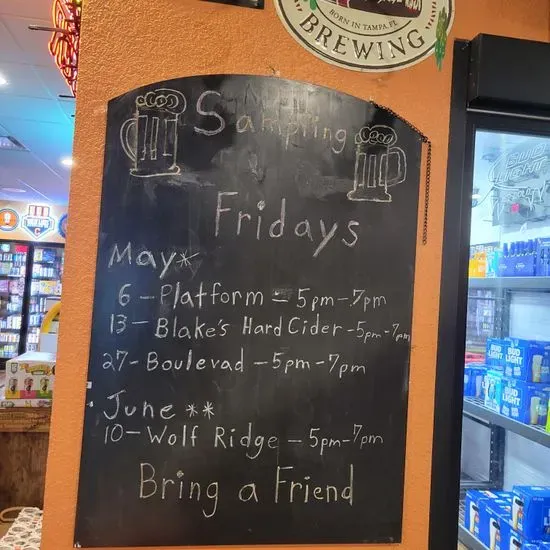 BORN IN TAMPA, FL
BREWING
Sampling
Fridays
May*
6 - Platform - 5pm-7pm
13 - Blake's Hard Cider - 5pm-7pm
27 - Boulevad - 5pm-7pm
June **
10 - Wolf Ridge - 5pm-7pm
Bring a Friend
BUD LIGHT
BUD LIGHT
BUD LIGHT